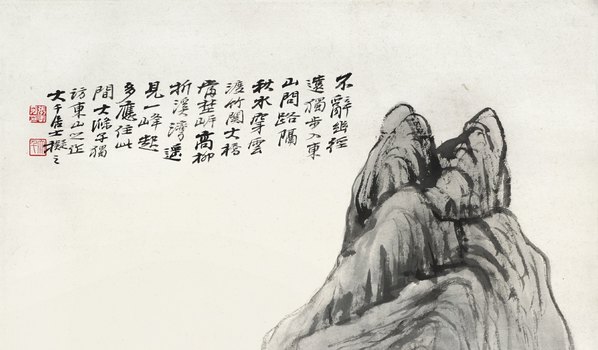 不辭幽徑
遠獨步入東
山問路隔
秋水穿雲
渡竹關大梧
當埜岸高柳
折溪灣遥
見一峰起
多應住此
間大滌子獨
訪東山之作
大千居士擬之